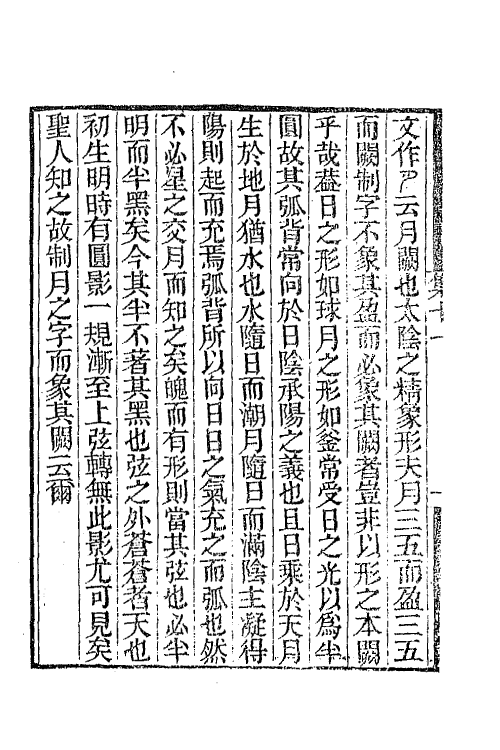 文作𠄔云月闕也太陰之精象形夫月三五而盈三五
而闕制字不象其盈而必象其闕者豈非以形之本闕
乎哉葢日之形如球月之形如釜常受日之光以爲半
圓故其弧背常向於日陰承陽之義也且日乘於天月
生於地月猶水也水隨日而潮月隨日而滿陰主凝得
陽則起而充焉弧背所以向日日之氣充之而弧也然
不必星之交月而知之矣魄而有形則當其弦也必半
明而半黑矣今其半不著其黑也弦之外蒼蒼者天也
初生明時有圓影一規漸至上弦轉無此影尤可見矣
聖人知之故制月之字而象其闕云爾